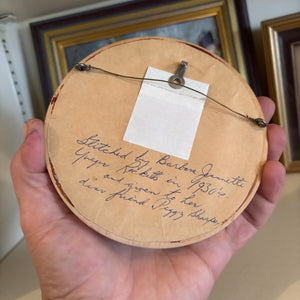 Stitched by Barbara Jeanette
in 1930's
and given to her
dear friend Peggy Sharpe.